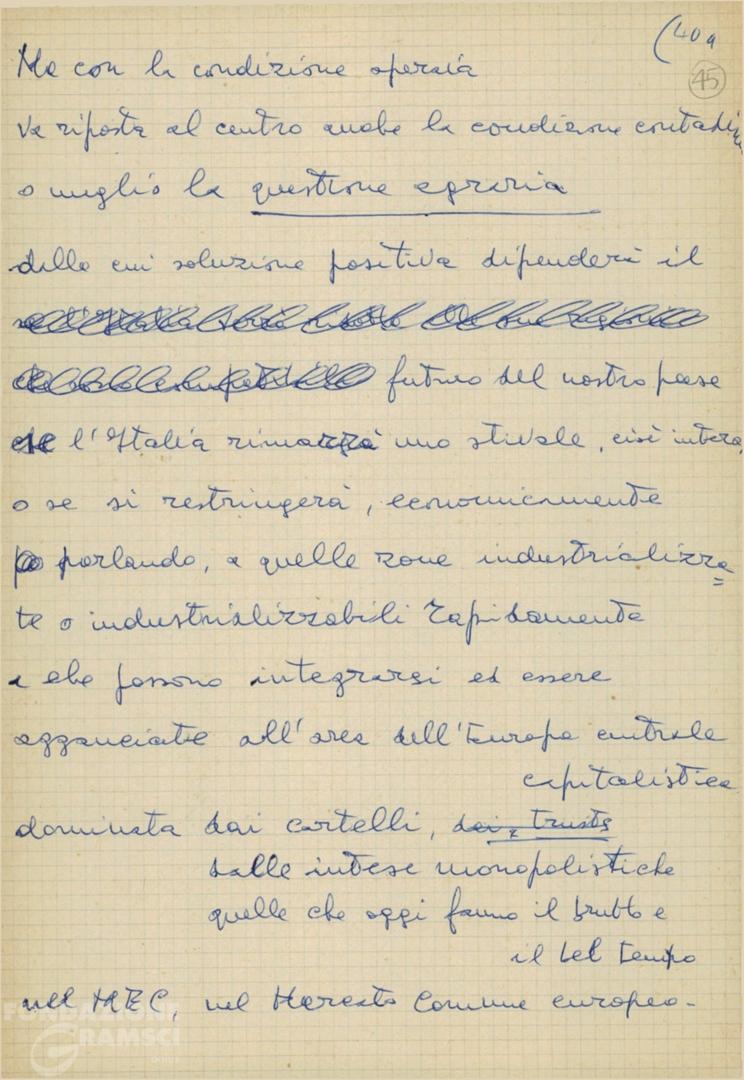 (40a
45
Ma con la condizione operaia
va riposta al centro anche la condizione contadina
o meglio la questione agraria
dalla cui soluzione positiva dipenderà il
futuro del nostro paese
se l'Italia rimarrà uno stivale, così intera,
o se si restringerà, economicamente
parlando, a quelle zone industrializza=
te o industrializzabili rapidamente
e che possono integrarsi ed essere
agganciate all'area dell'Europa centrale
capitalistica
dominata dai cartelli, dai trusts
dalle intese monopolistiche
quelle che oggi fanno il brutto e
il bel tempo
nel MEC, nel Mercato Comune europeo.
FONDAZIONE
GRAMSCI